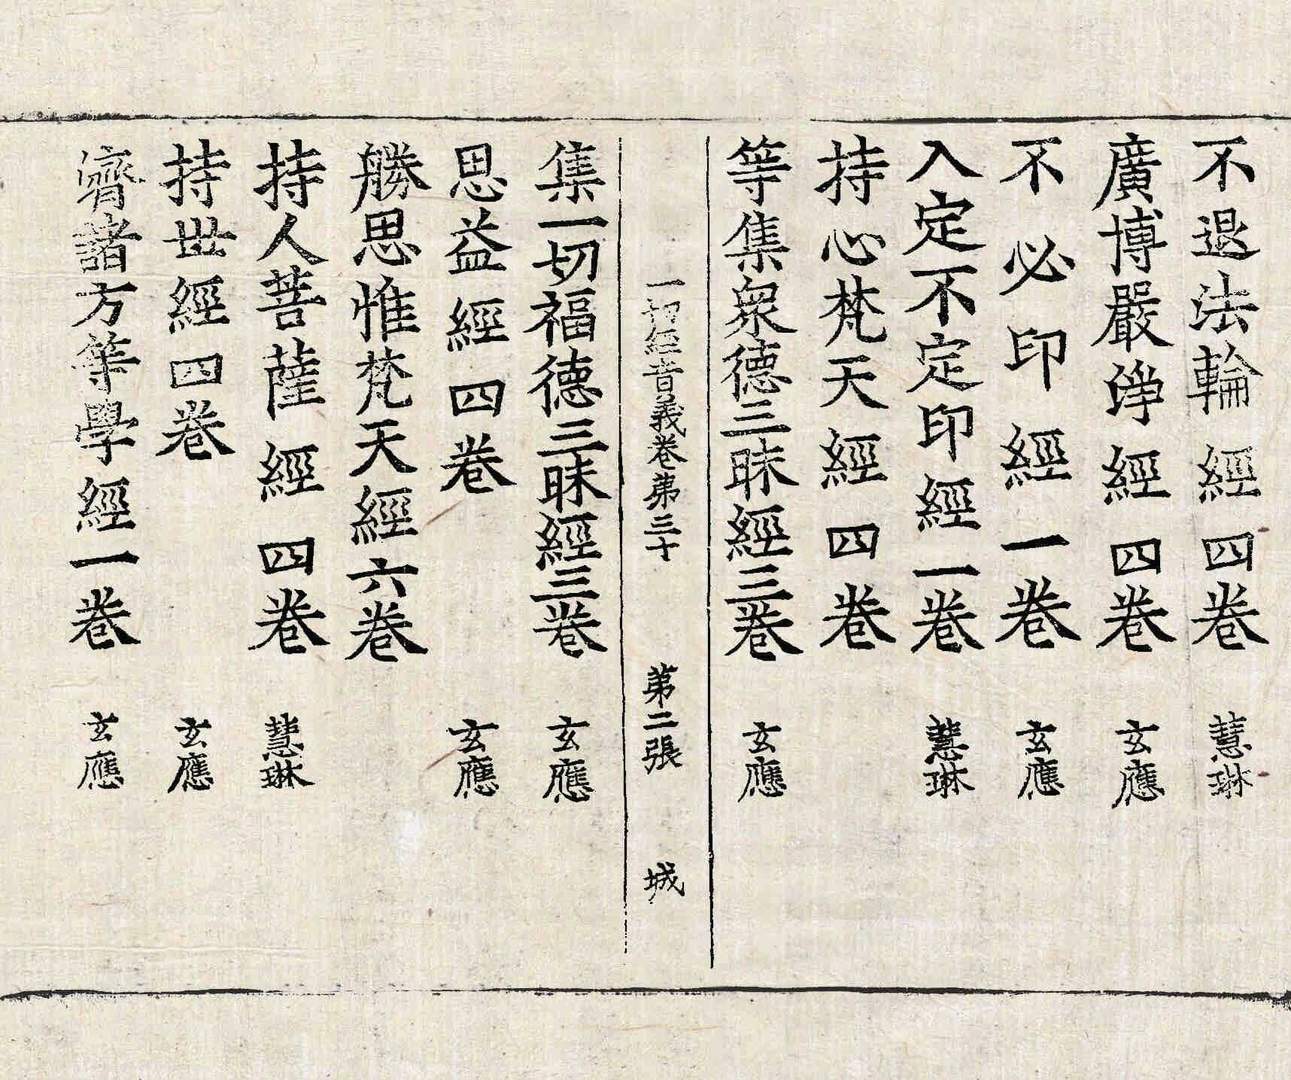 不退法輪經四卷 慧琳
廣博嚴淨經四卷 玄應
不必印經一卷 玄應
入定不定印經一卷 慧琳
持心梵天經四卷
等集衆德三昧經三卷 玄應
一切經音義卷第三十 第二張 城
集一切福德三昧經三卷 玄應
思益經四卷 玄應
勝思惟梵天經六卷
持人菩薩經四卷 慧琳
持世經四卷 玄應
濟諸方等學經一卷 玄應